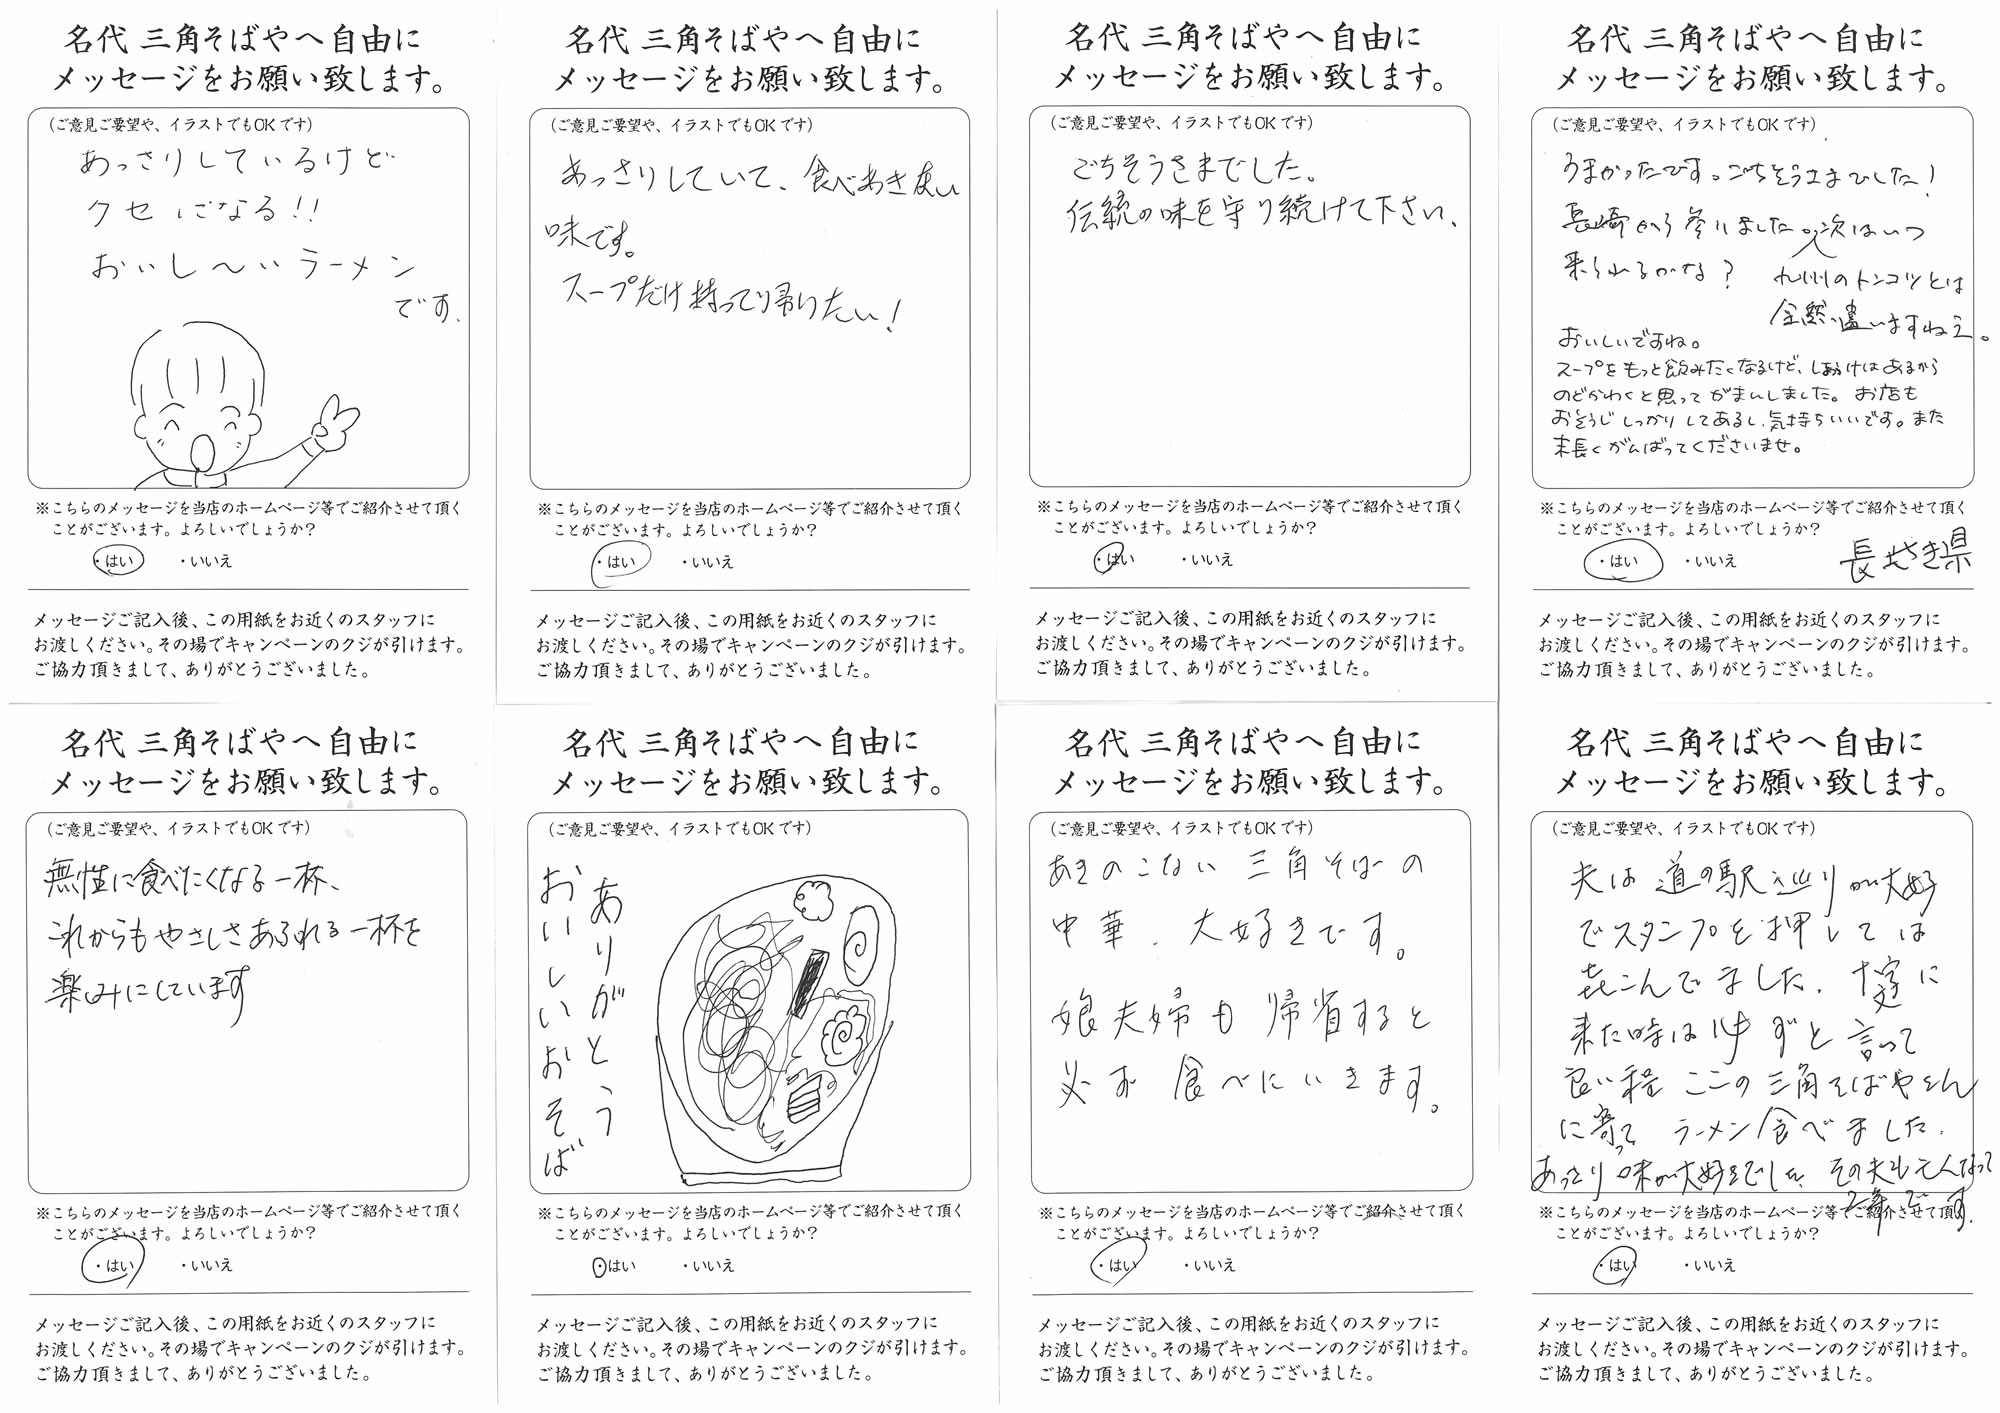 名代 三角そばやへ自由に
メッセージをお願い致します。
（ご意見ご要望や、イラストでもOKです）
あっさりしているけど
クセになる!!
おいし〜いラーメン
です.
※こちらのメッセージを当店のホームページ等でご紹介させて頂く
ことがございます。よろしいでしょうか?
・はい ・いいえ
メッセージご記入後、この用紙をお近くのスタッフに
お渡しください。その場でキャンペーンのクジが引けます。
ご協力頂きまして、ありがとうございました。
名代 三角そばやへ自由に
メッセージをお願い致します。
（ご意見ご要望や、イラストでもOKです）
あっさりしていて、食べあきない
味です。
スープだけ持って帰りたい!
※こちらのメッセージを当店のホームページ等でご紹介させて頂く
ことがございます。よろしいでしょうか?
・はい ・いいえ
メッセージご記入後、この用紙をお近くのスタッフに
お渡しください。その場でキャンペーンのクジが引けます。
ご協力頂きまして、ありがとうございました。
名代 三角そばやへ自由に
メッセージをお願い致します。
（ご意見ご要望や、イラストでもOKです）
ごちそうさまでした。
伝統の味を守り続けて下さい、
※こちらのメッセージを当店のホームページ等でご紹介させて頂く
ことがございます。よろしいでしょうか?
・はい ・いいえ
メッセージご記入後、この用紙をお近くのスタッフに
お渡しください。その場でキャンペーンのクジが引けます。
ご協力頂きまして、ありがとうございました。
名代 三角そばやへ自由に
メッセージをお願い致します。
（ご意見ご要望や、イラストでもOKです）
うまかったです。ごちそうさまでした!
長崎から参りました。次はいつ
来られるかな?
九州のトンコツとは
全然違いますねえ。
おいしいですね。
スープをもっと飲みたくなるけど、しおけはあるから
のどかわくと思ってがまんしました。お店も
おそうじしっかりしてあるし、気持ちいいです。また
末長くがんばってくださいませ。
※こちらのメッセージを当店のホームページ等でご紹介させて頂く
ことがございます。よろしいでしょうか?
・はい ・いいえ
長さき県
メッセージご記入後、この用紙をお近くのスタッフに
お渡しください。その場でキャンペーンのクジが引けます。
ご協力頂きまして、ありがとうございました。
名代 三角そばやへ自由に
メッセージをお願い致します。
（ご意見ご要望や、イラストでもOKです）
無性に食べたくなる一杯、
これからもやさしさあふれる一杯を
楽しみにしています
※こちらのメッセージを当店のホームページ等でご紹介させて頂く
ことがございます。よろしいでしょうか?
・はい ・いいえ
メッセージご記入後、この用紙をお近くのスタッフに
お渡しください。その場でキャンペーンのクジが引けます。
ご協力頂きまして、ありがとうございました。
名代 三角そばやへ自由に
メッセージをお願い致します。
（ご意見ご要望や、イラストでもOKです）
ありがとう
おいしいおそば
※こちらのメッセージを当店のホームページ等でご紹介させて頂く
ことがございます。よろしいでしょうか?
・はい ・いいえ
メッセージご記入後、この用紙をお近くのスタッフに
お渡しください。その場でキャンペーンのクジが引けます。
ご協力頂きまして、ありがとうございました。
名代 三角そばやへ自由に
メッセージをお願い致します。
（ご意見ご要望や、イラストでもOKです）
あきのこない三角そばの
中華、大好きです。
娘夫婦も帰省すると
必ず食べにいきます。
※こちらのメッセージを当店のホームページ等でご紹介させて頂く
ことがございます。よろしいでしょうか?
・はい ・いいえ
メッセージご記入後、この用紙をお近くのスタッフに
お渡しください。その場でキャンペーンのクジが引けます。
ご協力頂きまして、ありがとうございました。
名代 三角そばやへ自由に
メッセージをお願い致します。
（ご意見ご要望や、イラストでもOKです）
夫は道の駅巡りが大好
でスタンプを押しては
喜こんでました.
に
来た時は必ずと言って
良い程ここの三角そばやさん
に寄って ラーメン食べました.
あっさり味が大好きでした、その夫も亡くなって
2年です.
※こちらのメッセージを当店のホームページ等でご紹介させて頂く
ことがございます。よろしいでしょうか?
・はい ・いいえ
メッセージご記入後、この用紙をお近くのスタッフに
お渡しください。その場でキャンペーンのクジが引けます。
ご協力頂きまして、ありがとうございました。